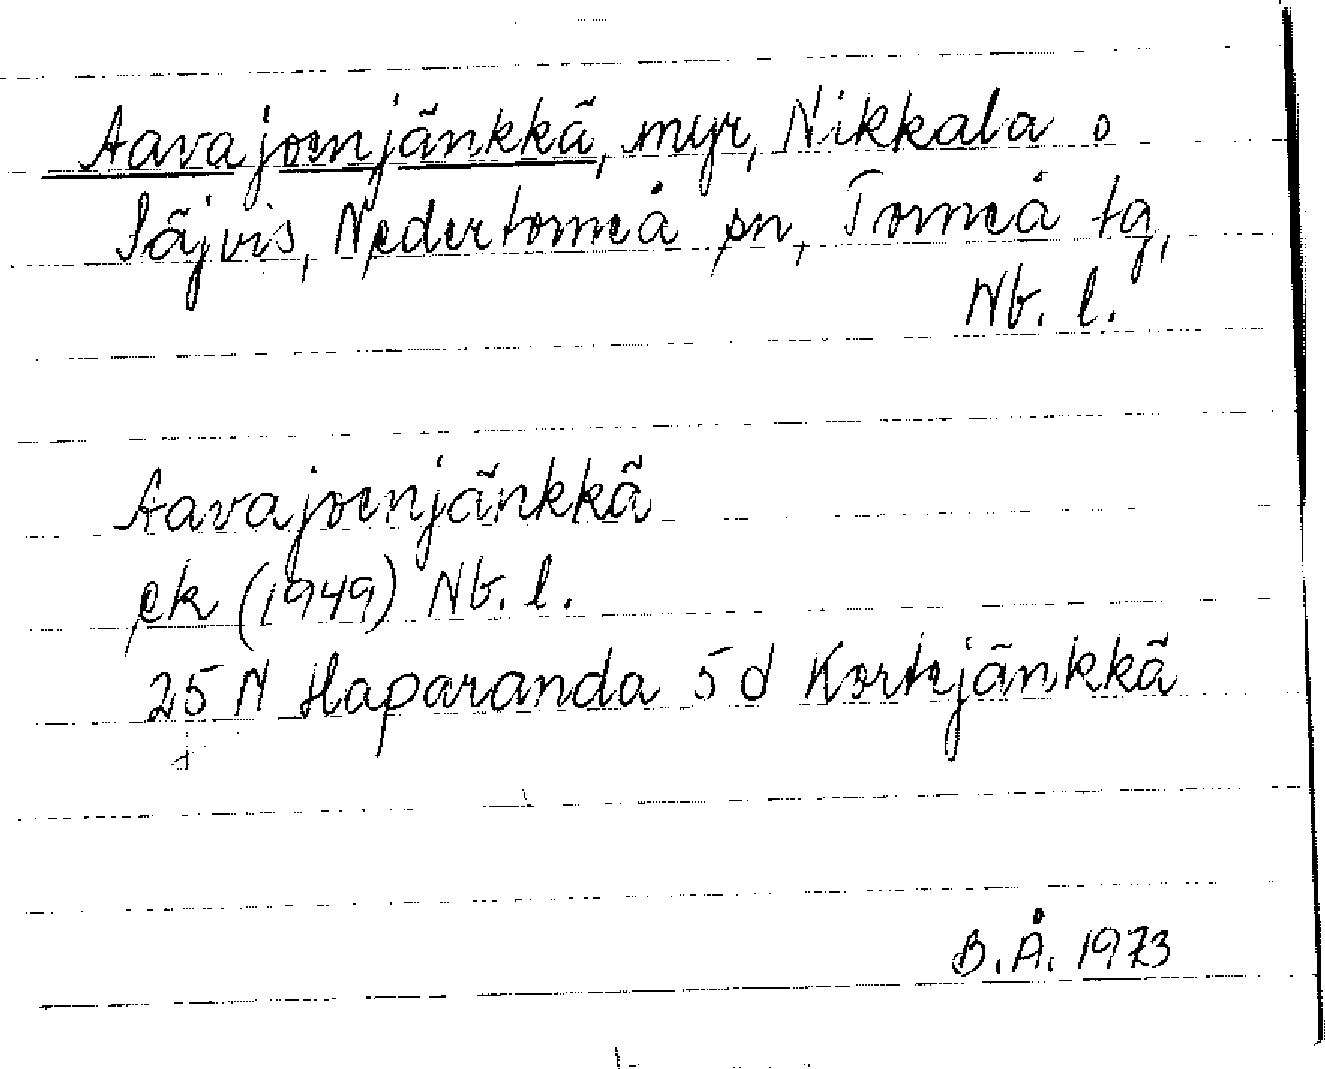 Aavajoenjänkkä, myr, Nikkala o
Säjvis, Nedertorneå sn, Torneå tg,
Nb. l.
Aavajoenjänkkä
ek (1949) Nb. l.
25 N Haparanda 5 d Kortejänkkä
B.Å. 1973